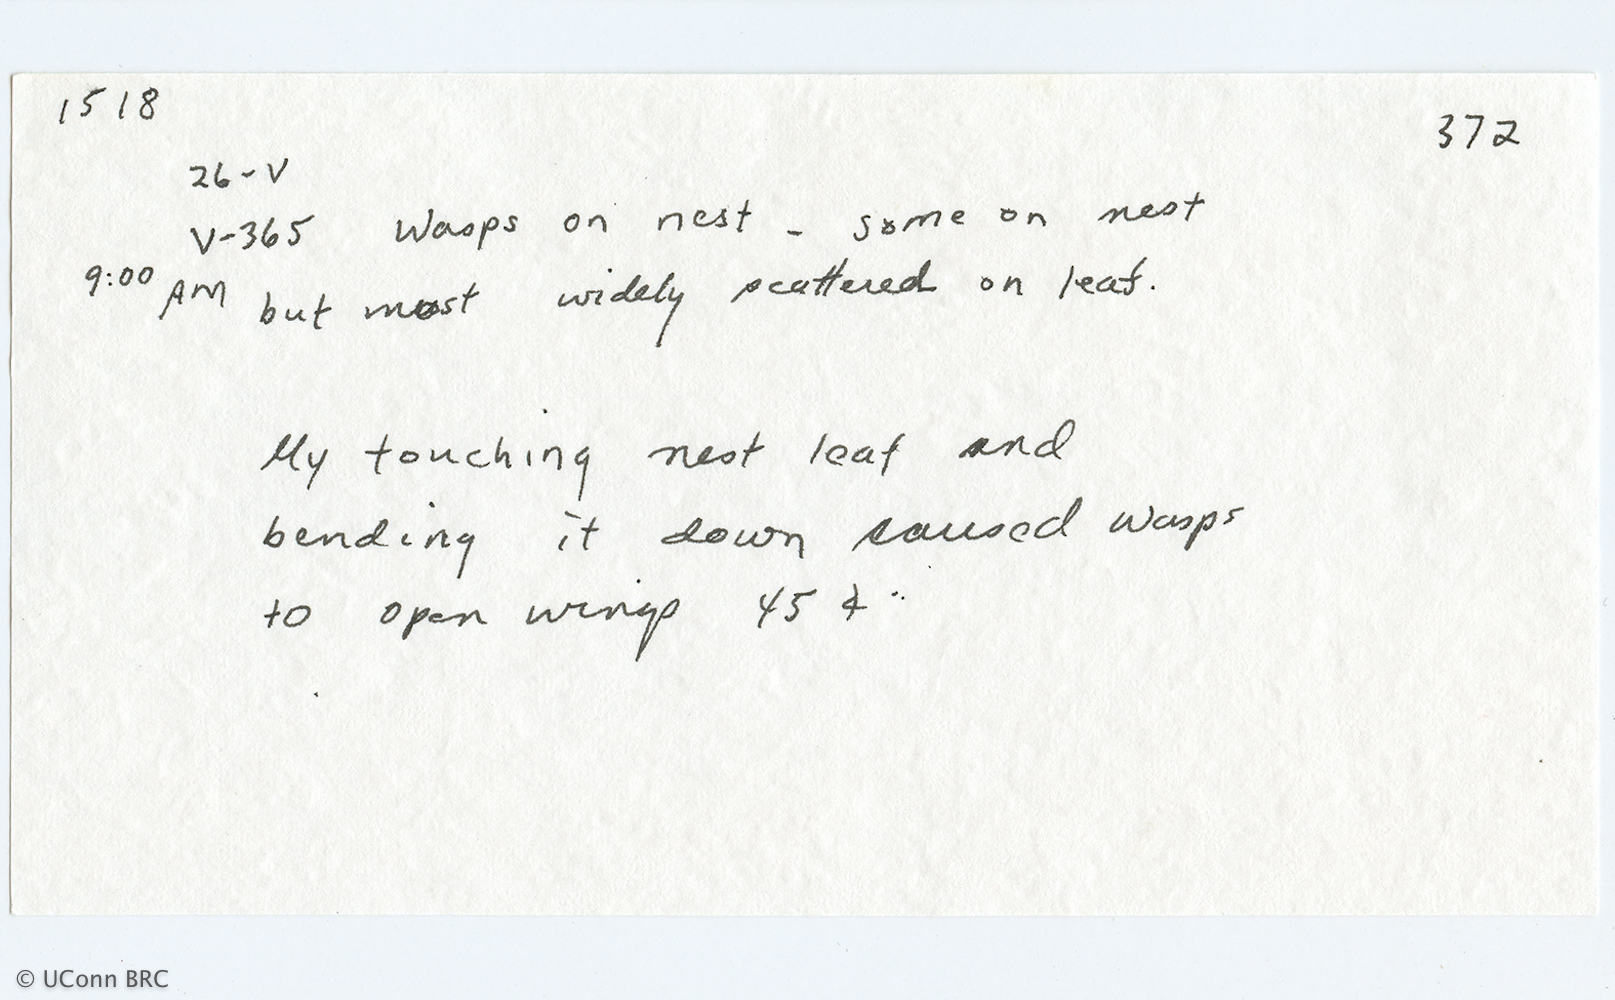 1518
372
26-V
V-365 Wasps on nest - some on nest
9:00 AM but most widely scattered on leaf.
My touching nest leaf and
bending it down caused wasps
to open wings 45 ∡
© UConn BRC